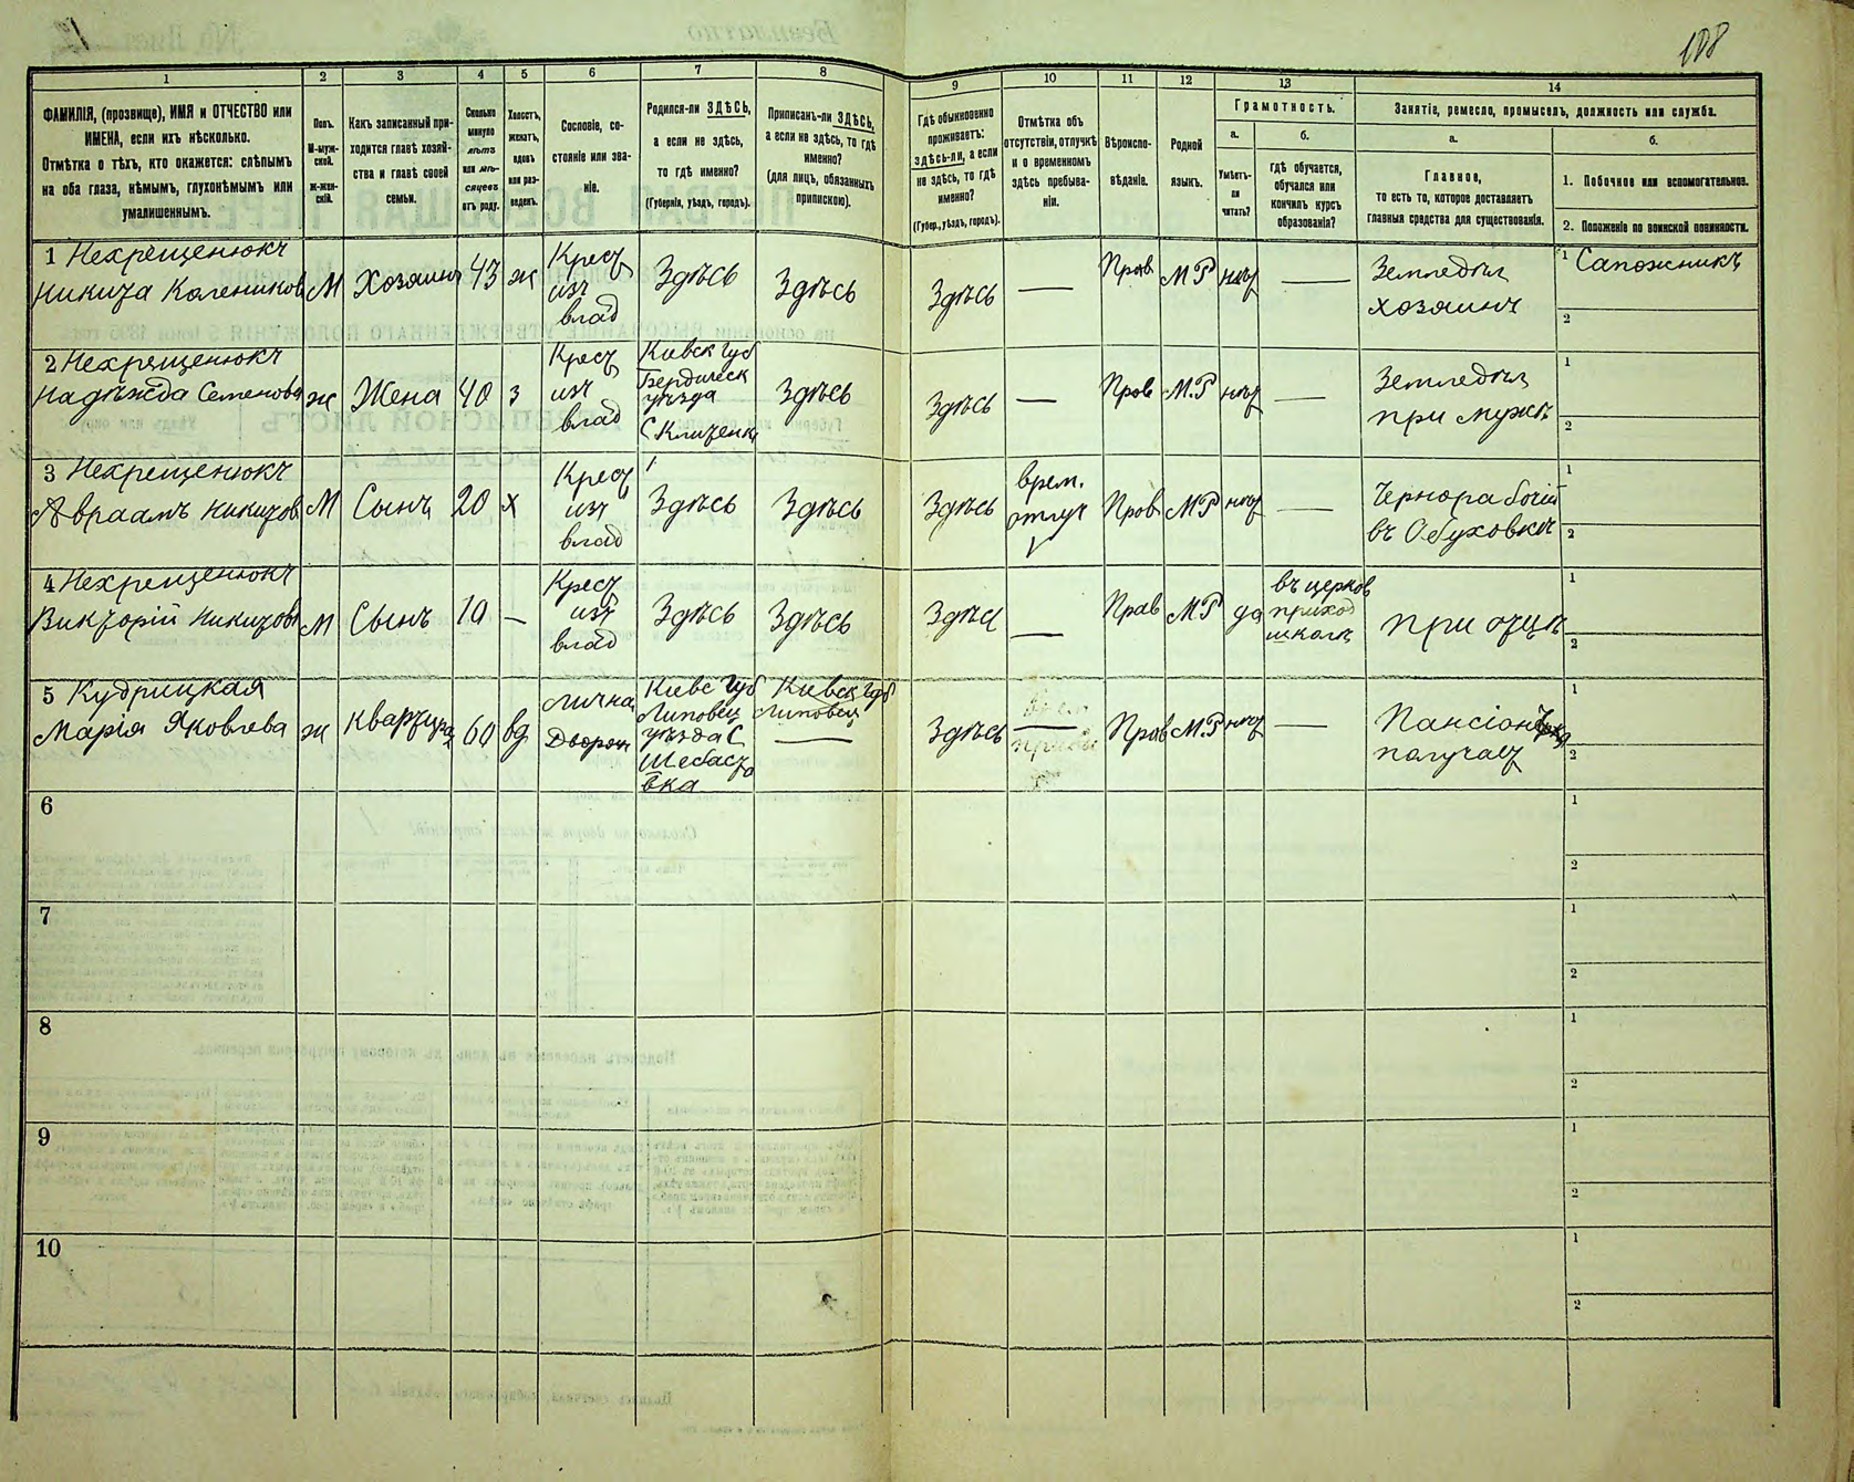 108
1 2 3 4 5 6 7 8 9 10 11 12 13 14
ФАМИЛІЯ, (прозвище), ИМЯ и ОТЧЕСТВО или
ИМЕНА, если ихъ нѣсколько.
Отмѣтка о тѣхъ, кто окажется: слѣпымъ
на оба глаза, нѣмымъ, глухонѣмымъ или
умалишеннымъ.
Полъ.
М-муж-
ской.
Ж-жен-
скій.
Какъ записанный при-
ходится главѣ хозяй-
ства и главѣ своей
семьи.
Сколько
минуло
лѣтъ
или мѣ-
сяцевъ
отъ роду.
Холостъ,
женатъ,
вдовъ
или раз-
веденъ.
Сословіе, со-
стояніе или зва-
ніе.
Родился-ли ЗДѢСЬ,
а если не здѣсь,
то гдѣ именно?
(Губернія, уѣздъ, городъ).
Приписанъ-ли ЗДѢСЬ,
а если не здѣсь, то гдѣ
именно?
(для лицъ, обязанныхъ
припискою).
Гдѣ обыкновенно
проживаетъ:
здѣсь-ли, а если
не здѣсь, то гдѣ
именно?
(Губер., уѣздъ, городъ).
Отмѣтка объ
отсутствіи, отлучкѣ
и о временномъ
здѣсь пребыва-
ніи.
Вѣроиспо-
вѣданіе.
Родной
языкъ.
Грамотность.
а. б.
Умѣетъ-
ли
читать?
гдѣ обучается,
обучался или
кончилъ курсъ
образованія?
Занятіе, ремесло, промыселъ, должность или служба.
а. б.
Главное,
то есть то, которое доставляетъ
главныя средства для существованія.
1. Побочное или вспомогательное.
2. Положеніе по воинской повинности.
1 Нехрещенюкъ
Никита Калениковъ М Хозяинъ 43 ж Крест изъ влад Здѣсь Здѣсь Здѣсь — Прав М.Р нѣт — Земледѣл хозяинъ 1 Сапожникъ
2
2 Нехрещенюкъ
Надѣжда Семенова ж Жена 40 з Крест изъ влад Киевск губ Бердическ уѣзда С Здѣсь Здѣсь — Прав М.Р нѣт — Земледѣл при мужѣ 1
2
3 Нехрещенюкъ
Авраамъ Никитов М Сынъ 20 х Крест изъ влад Здѣсь Здѣсь Здѣсь врем. отлуч Прав М.Р нѣт — Чернорабочій въ Обуховкѣ 1
2
4 Нехрещенюкъ
Викторій Никитовъ М Сынъ 10 — Крест изъ влад Здѣсь Здѣсь Здѣс — Прав М.Р да въ церков приход школѣ при отцѣ 1
2
5 Кудрицкая
Марія Яковлева ж Квартира 60 вд лична Дворян Киевс губ Липовец уѣзда С Шебастовка Киевск губ Липовец — Здѣсь — Прав М.Р нѣт — получает 1
2
6 1
2
7 1
2
8 1
2
9 1
2
10 1
2